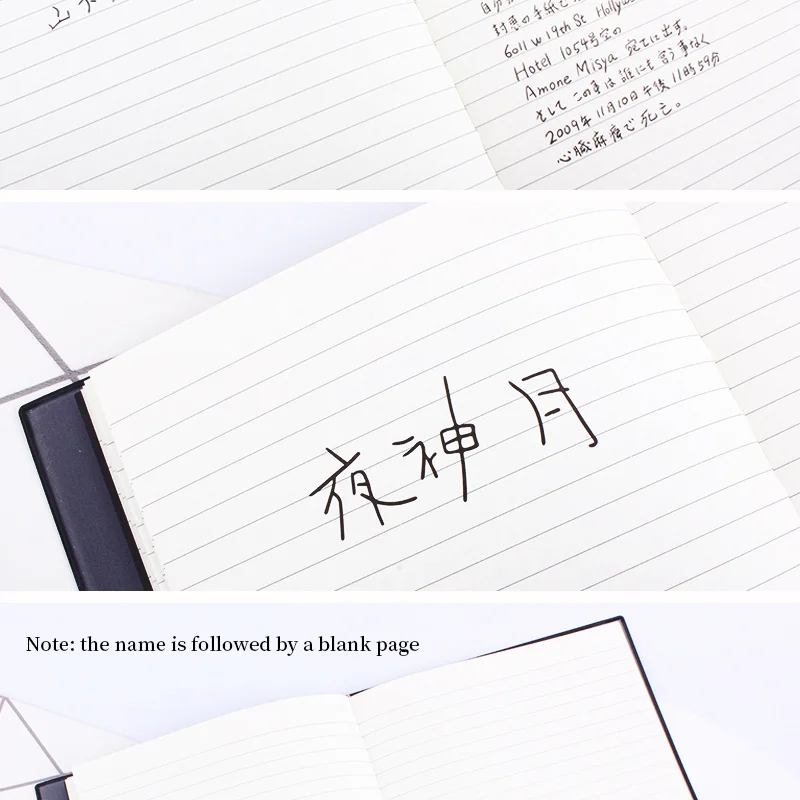 封悪の手紙で
6011 w 19th St Hollyw
Hotel 1054号室の
Amone Misya 宛てに出す。
そして この事は 誰にも 言う事なく
2009年 11月10日 午後 11時59分
心臓麻痺で 死亡。
夜神 月
Note: the name is followed by a blank page